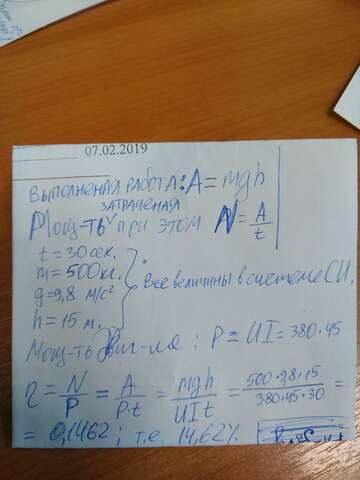 07.02.2019
ВЫПОЛНЕНАЯ РАБОТА: A = mgh
ЗАТРАЧЕНАЯ
Мощ-ть ПРИ ЭТОМ N = A/t
t = 30 сек.
m = 500 кг.
g = 9,8 м/с²
h = 15 м.
Все величины в системе СИ.
Мощ-ть Двиг-ля: P = UI = 380·45
η = N/P = A/P·t = mgh/UIt = 500·9,8·15/380·45·30 =
= 0,1462; т.е. 14,62%.